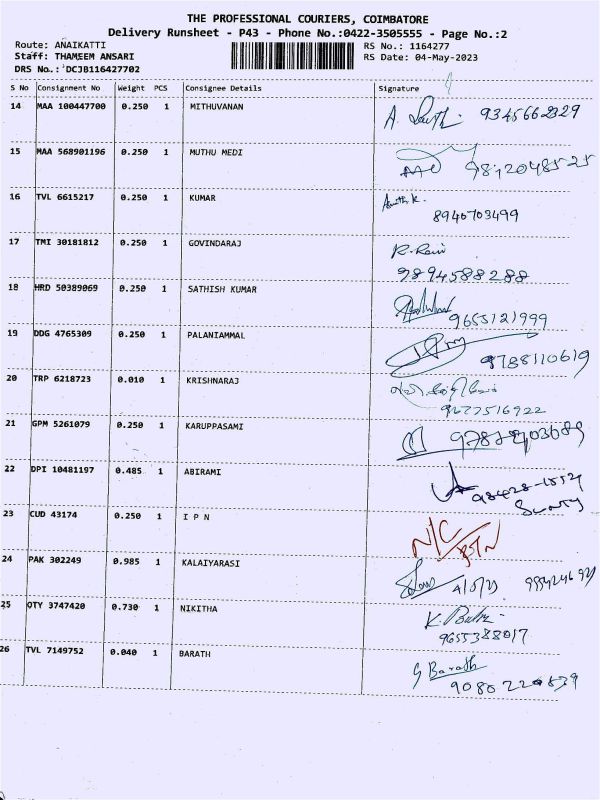 THE PROFESSIONAL COURIERS, COIMBATORE
Delivery Runsheet - P43 - Phone No.:0422-3505555 - Page No.:2
Route: ANAIKATTI RS No.: 1164277
Staff: THAMEEM ANSARI RS Date: 04-May-2023
DRS No.: DCJB116427702
S No Consignment No Weight PCS Consignee Details Signature
14 MAA 100447700 0.250 1 MITHUVANAN A 9345662329
15 MAA 568901196 0.250 1 MUTHU MEDI
16 TVL 6615217 0.250 1 KUMAR
8940703499
17 TMI 30181812 0.250 1 GOVINDARAJ R. Ravi
9894588288
18 HRD 50389069 0.250 1 SATHISH KUMAR
9655121999
19 DDG 4765309 0.250 1 PALANIAMMAL
9788110619
20 TRP 6218723 0.010 1 KRISHNARAJ
21 GPM 5261079 0.250 1 KARUPPASAMI
22 DPI 10481197 0.485 1 ABIRAMI
23 CUD 43174 0.250 1 I P N N/C
24 PAK 302249 0.985 1 KALAIYARASI 4/5/23
25 OTY 3747420 0.730 1 NIKITHA K.
9655388017
26 TVL 7149752 0.040 1 BARATH G Barath